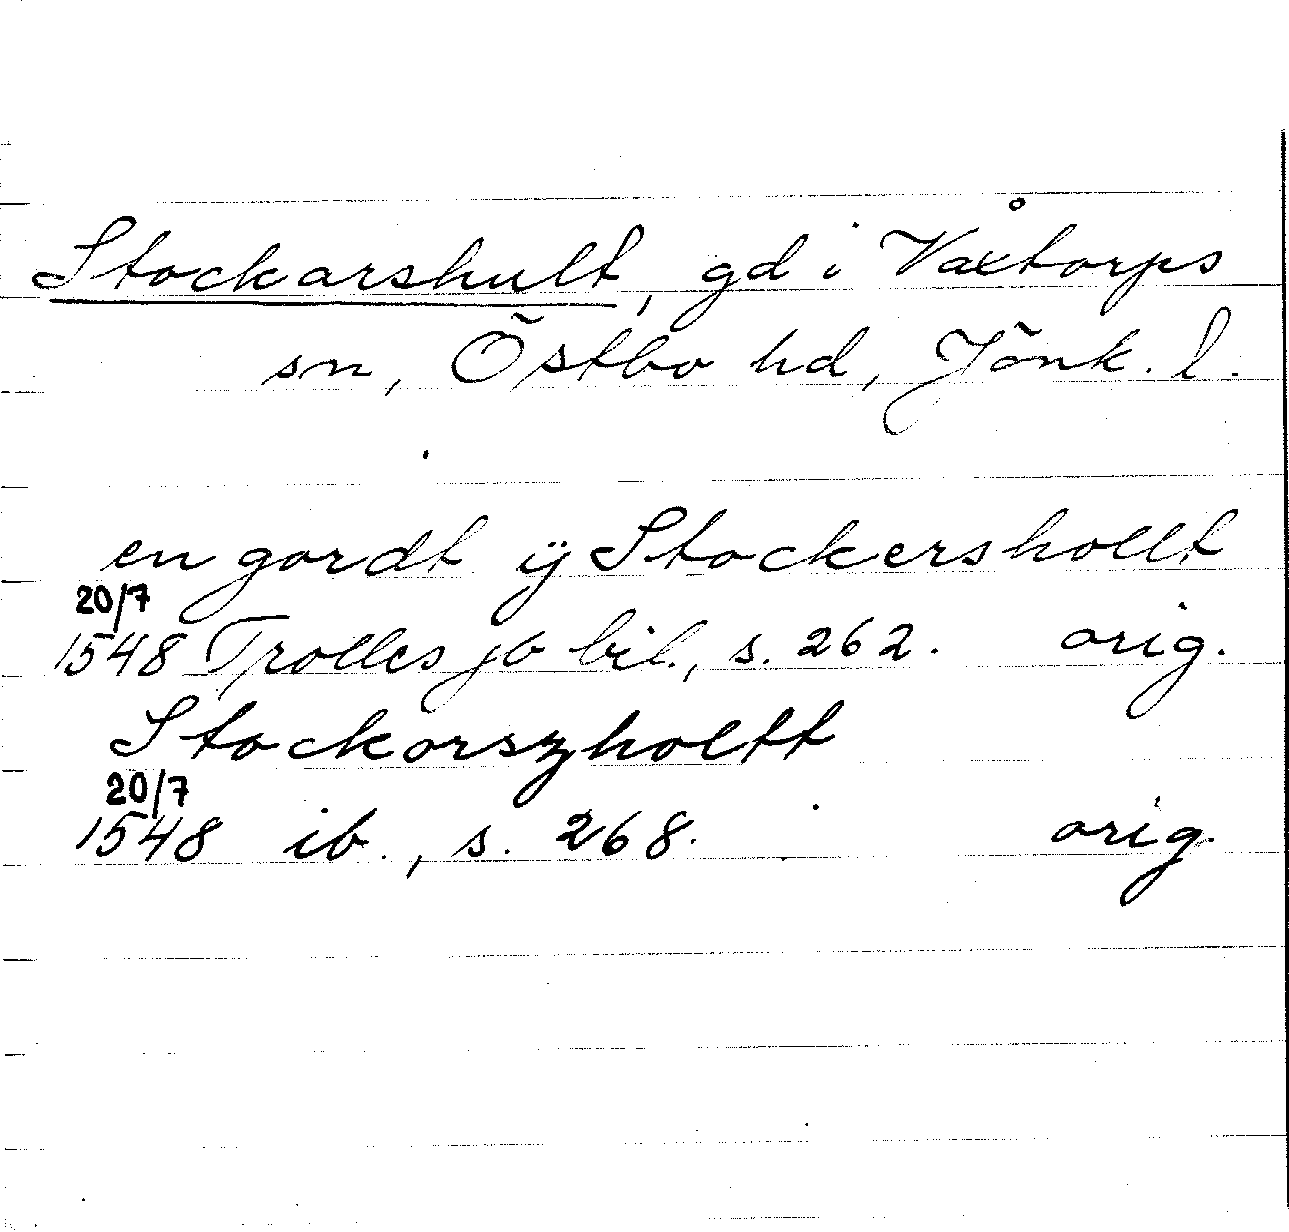 Stockarshult, gd i Våxtorps
sn, Östbo hd, Jönk. l.
en gordt ÿ Stockershollt
20/7
1548 Trolles jb bil., s. 262. orig.
Stockorszholtt
20/7
1548 ib., s. 268. orig.